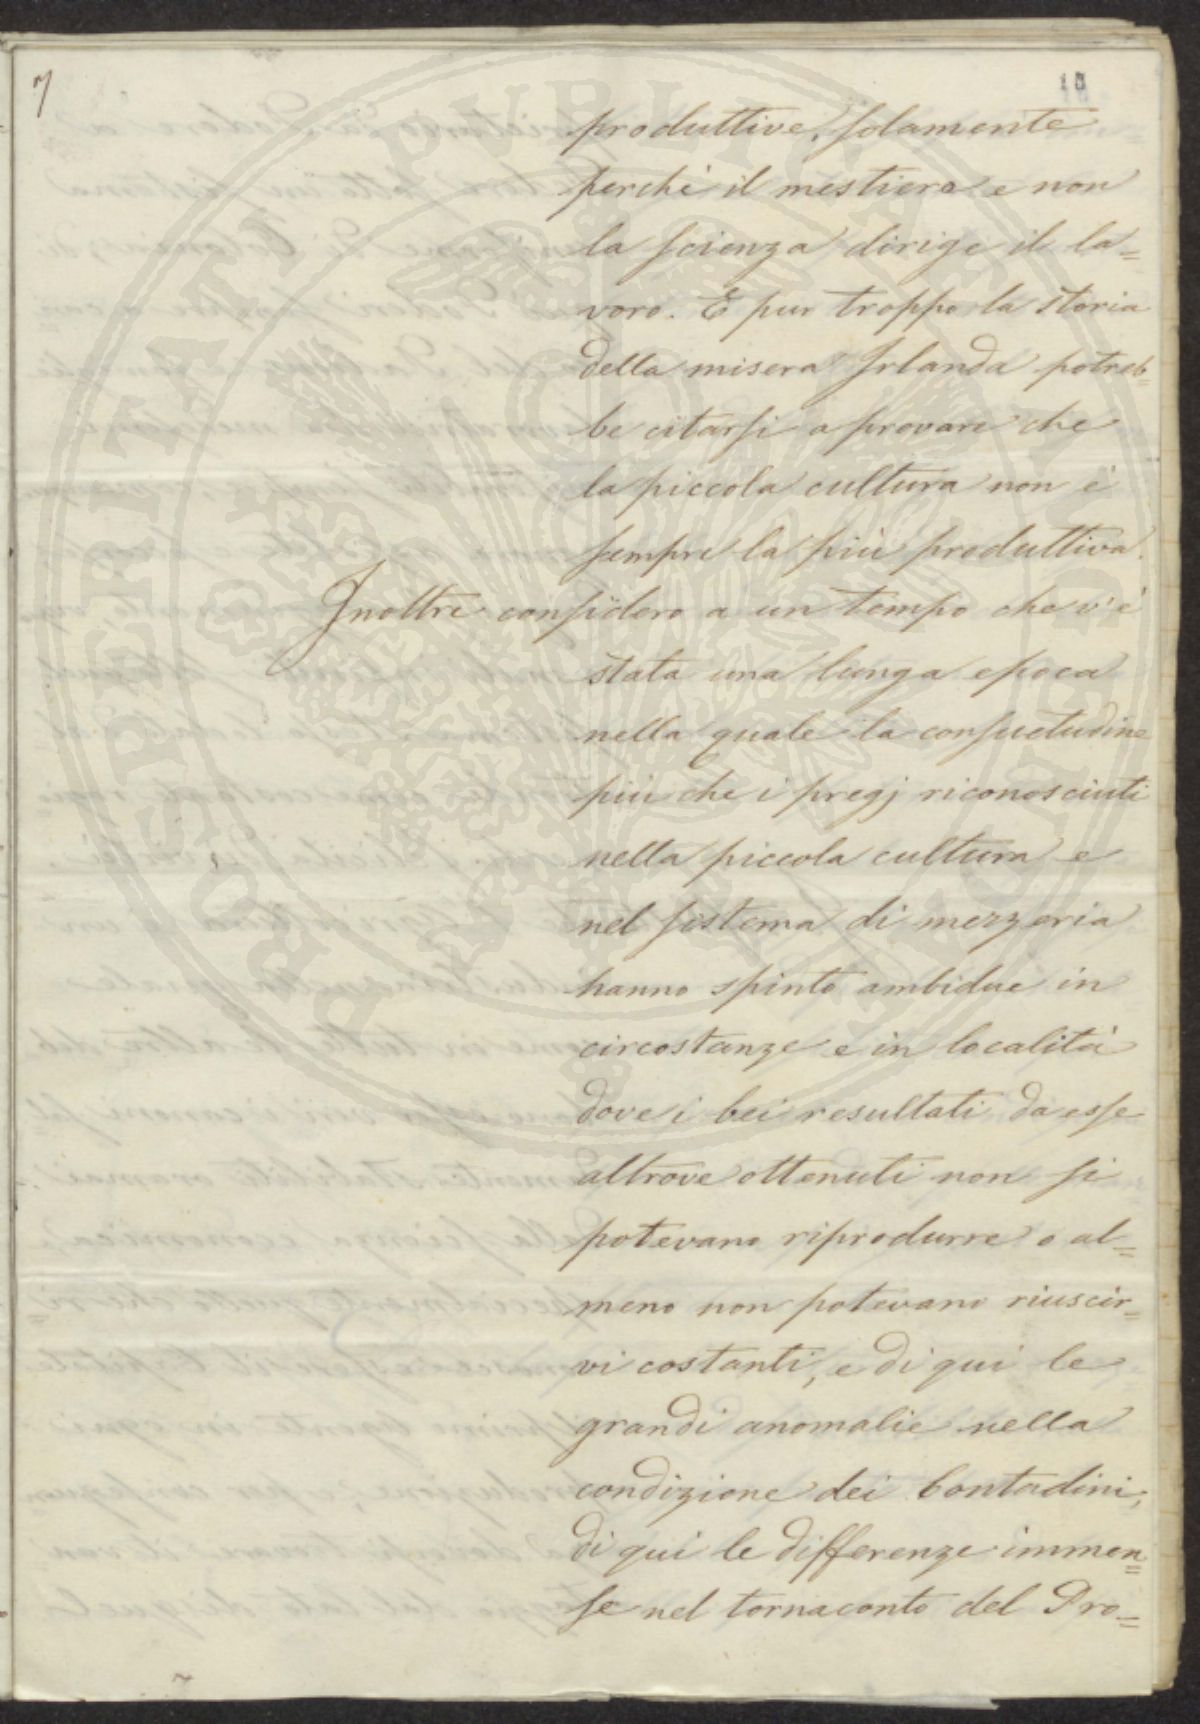 7
10
produttive, solamente
perchè il mestiere e non
la scienza dirige il la=
voro. E pur troppo la storia
della misera Irlanda potreb=
be citarsi a provare che
la piccola cultura non è
sempre la più produttiva.
Inoltre considero a un tempo che v'è
stata una lunga epoca
nella quale la consuetudine
più che i pregj riconosciuti
nella piccola cultura e
nel sistema di mezzeria
hanno spinto ambidue in
circostanze e in località
dove i bei resultati da esse
altrove ottenuti non si
potevano riprodurre o al=
meno non potevano riuscir=
vi costanti, e di qui le
grandi anomalie nella
condizione dei Contadini,
di qui le differenze immen=
se nel tornaconto del Pro=
PROSPERITATI PVBLICAE